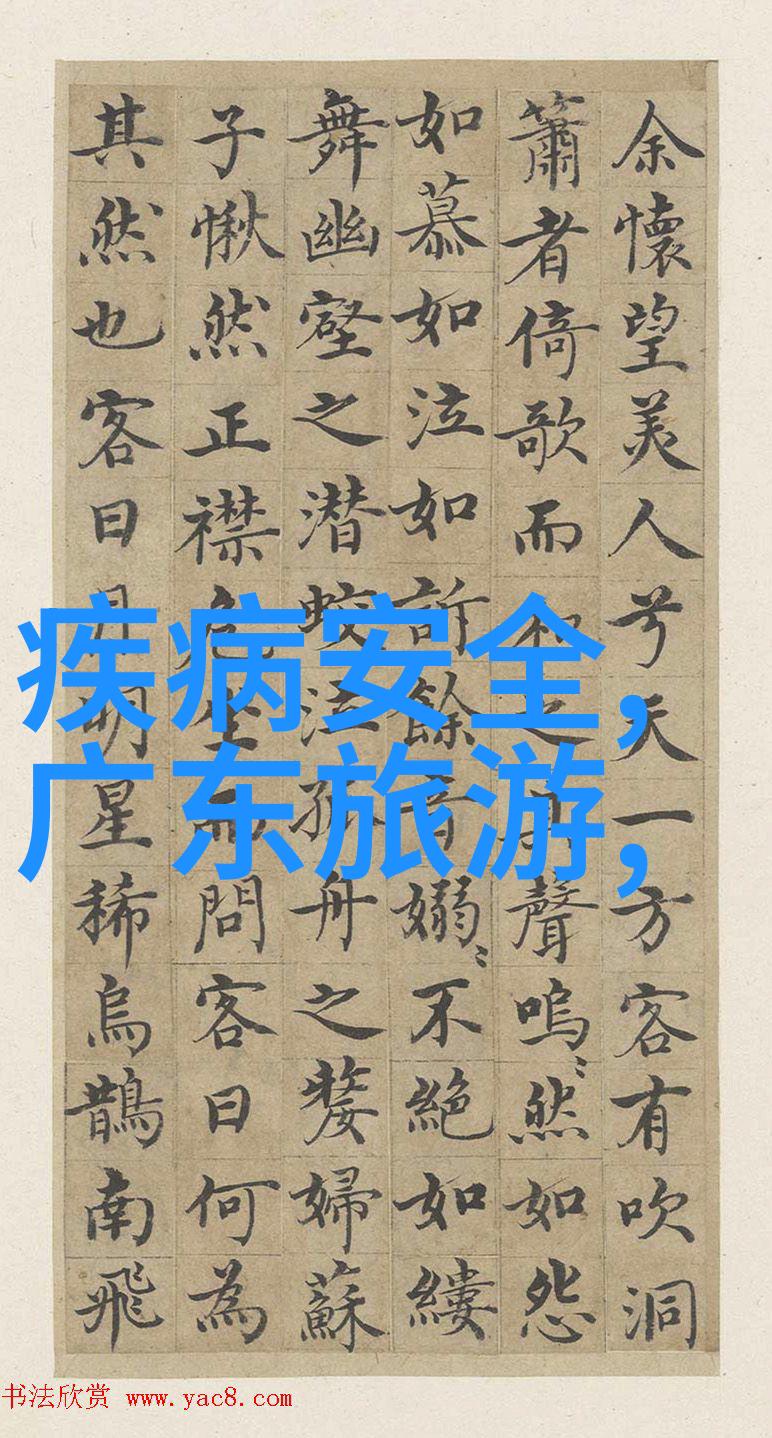 余懷望美人兮天一方客有吹洞
簫者倚歌而和之其聲嗚〻然如怨
如慕如泣如訴餘音嫋〻不絕如縷
舞幽壑之潜蛟泣孤舟之嫠婦蘇
子愀然正襟危坐而問客曰何為
其然也客曰月明星稀烏鵲南飛
疾病安全,
广东旅游,
书法欣赏 www.yac8.com